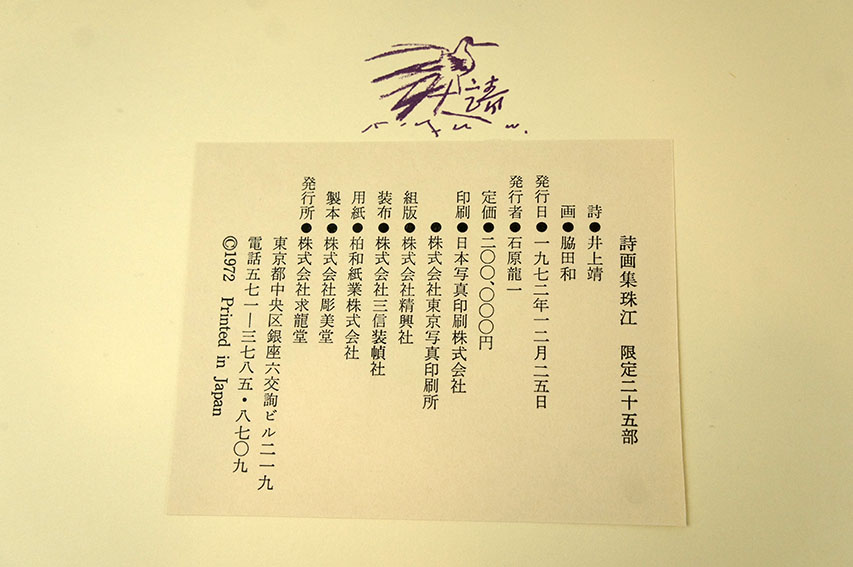 詩画集珠江　限定二十五部
詩●井上靖
画●脇田和
発行日●一九七二年一二月二五日
発行者●石原龍一
定価●二〇〇、〇〇〇円
印刷●日本写真印刷株式会社
●株式会社東京写真印刷所
組版●株式会社精興社
装布●株式会社三信装幀社
用紙●柏和紙業株式会社
製本●株式会社彫美堂
発行所●株式会社求龍堂
東京都中央区銀座六交詢ビル二一九
電話五七一―三七八五・八七〇九
©1972 Printed in Japan